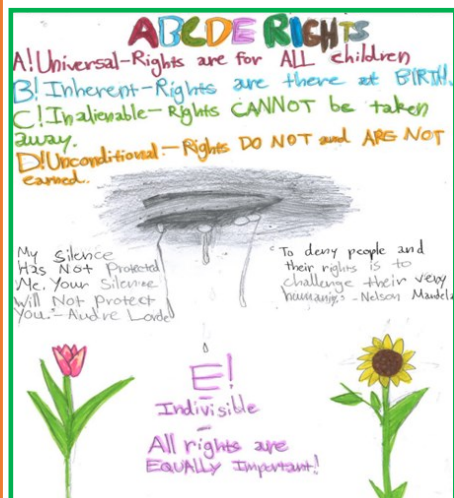 ABCDE RIGHTS
A! Universal-Rights are for ALL children
B! Inherent-Rights are there at BIRTH.
C! Inalienable-Rights CANNOT be taken
away.
D! Unconditional.-Rights DO NOT and ARE NOT
earned.
My Silence
Has Not Protected
Me. Your Silence
Will Not Protect
You."-Audre Lorde
"To deny people and
their rights is to
challenge their very
humanity." -Nelson Mandela
E!
Indivisible
-
All rights are
EQUALLY Important!